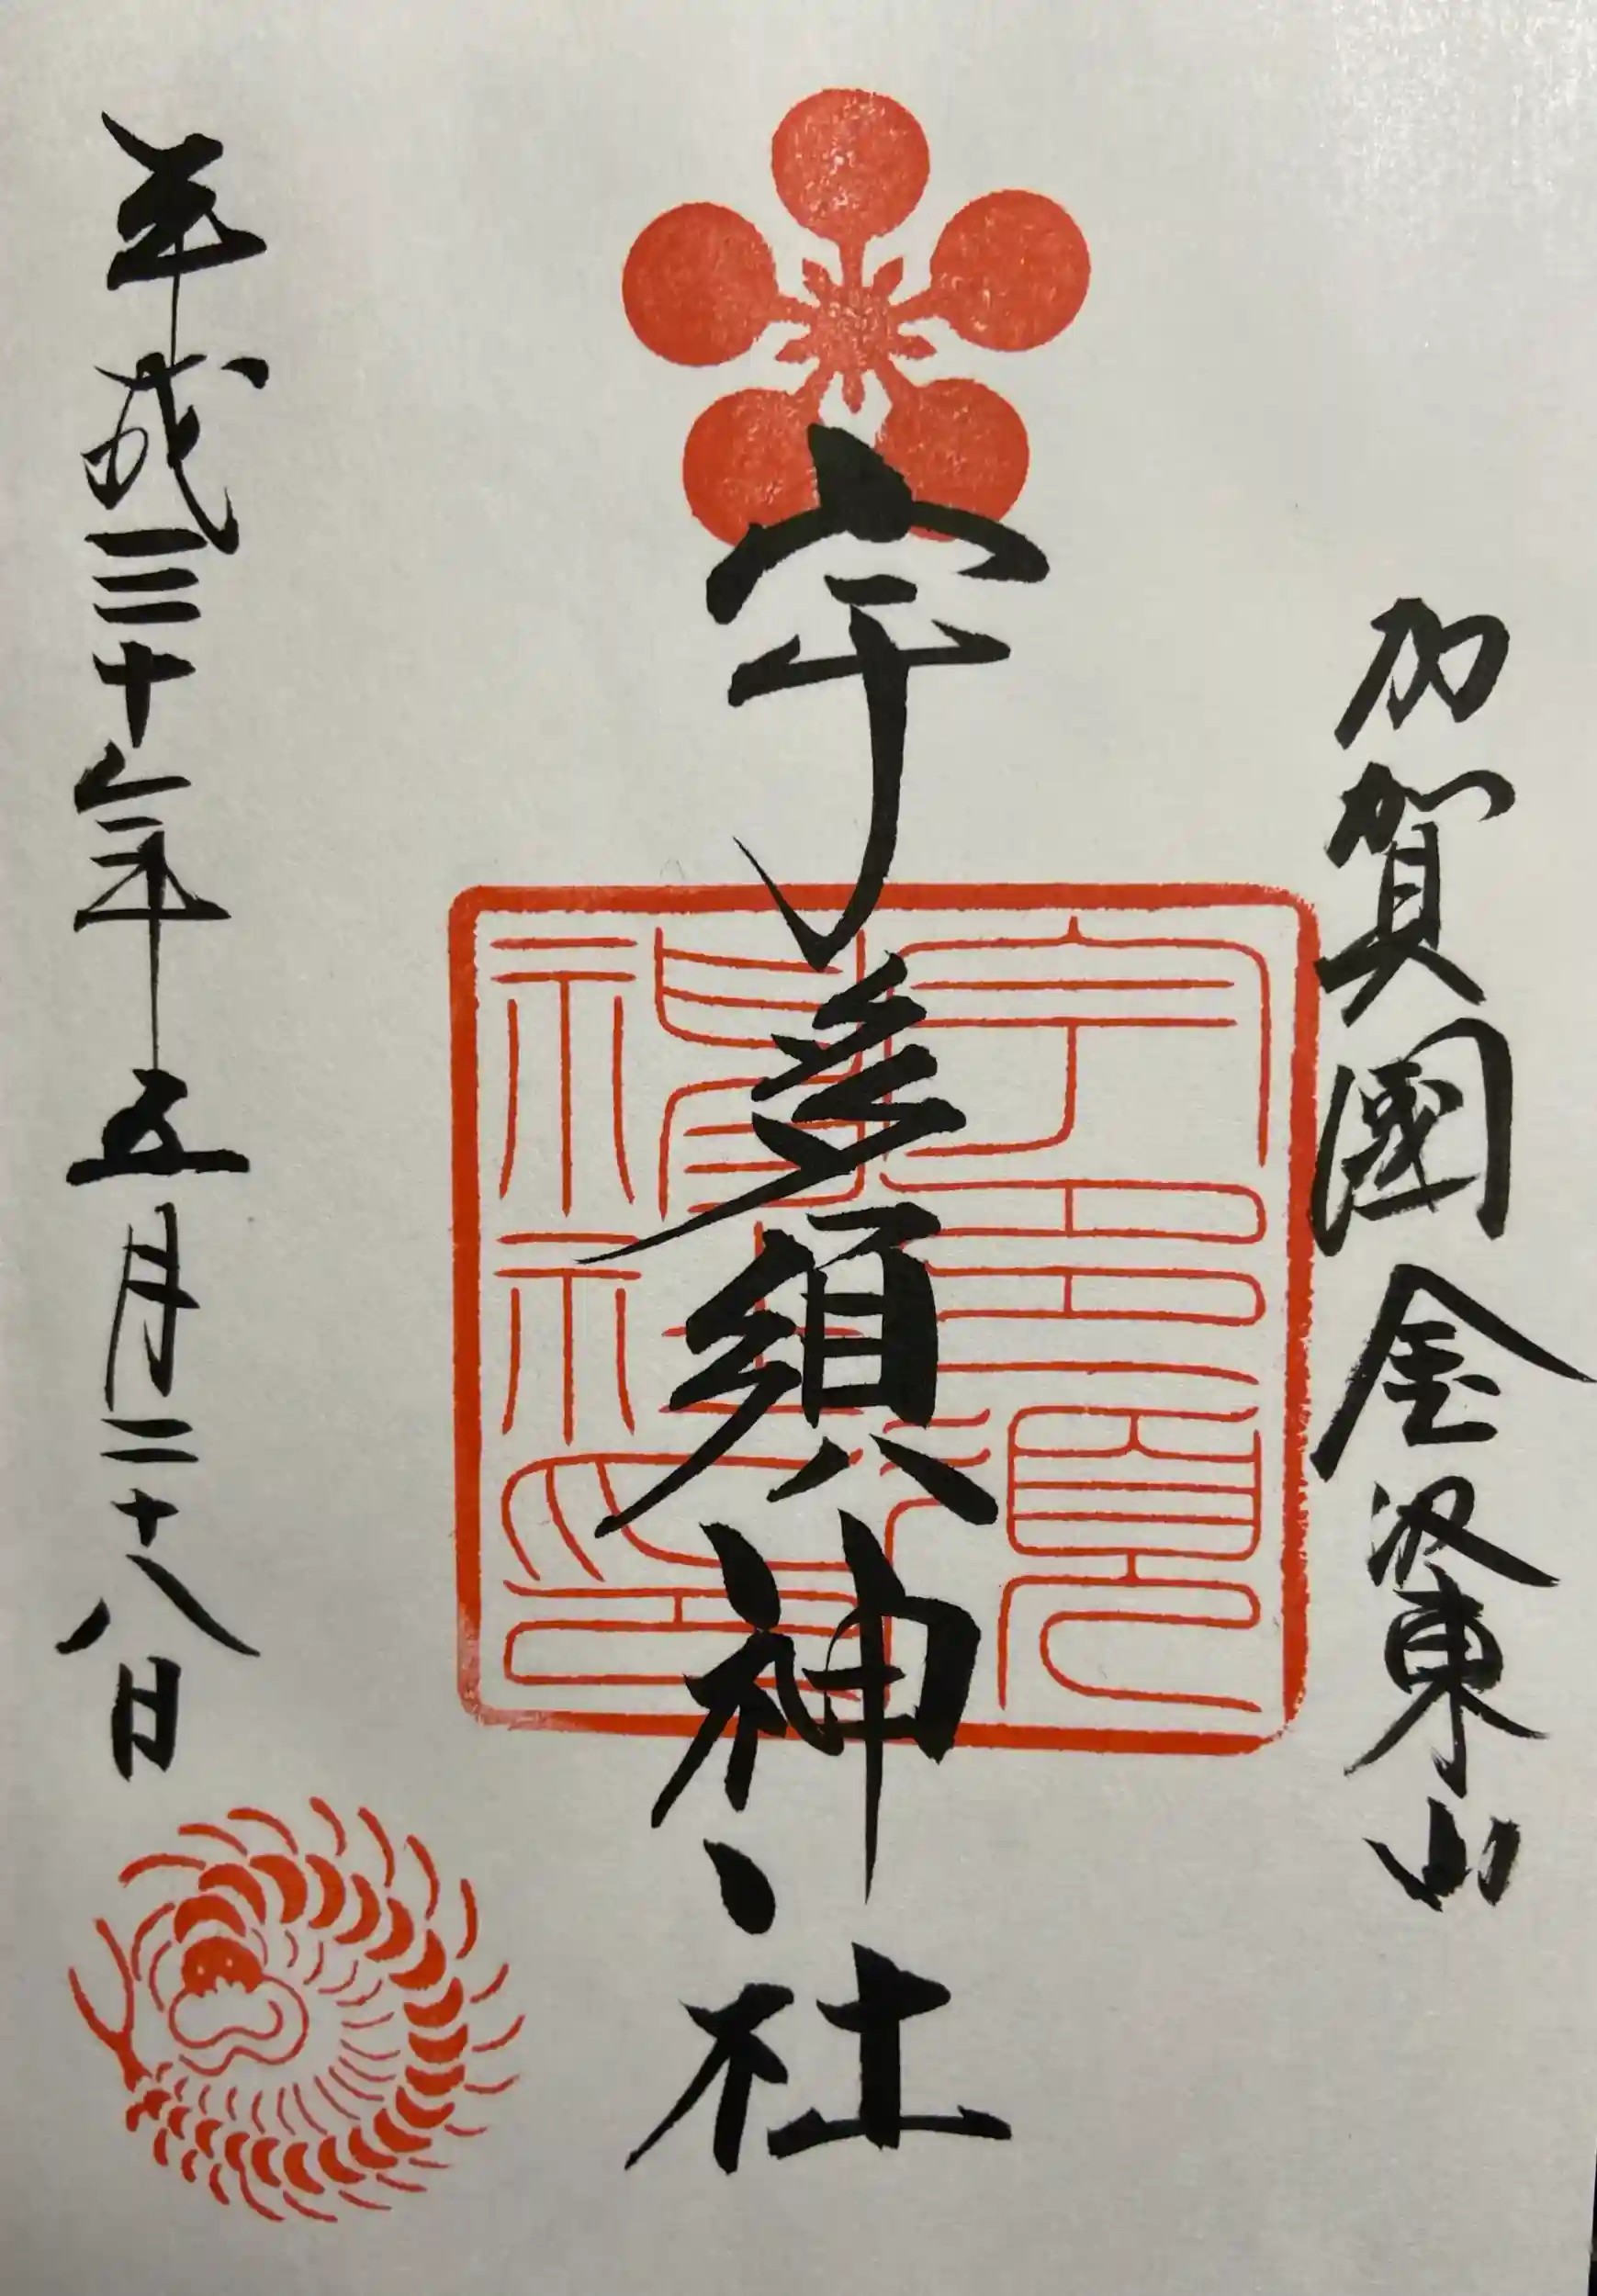 加賀國金沢東山
宇多須神社
平成三十年五月二十八日
宇多須
神社
之印